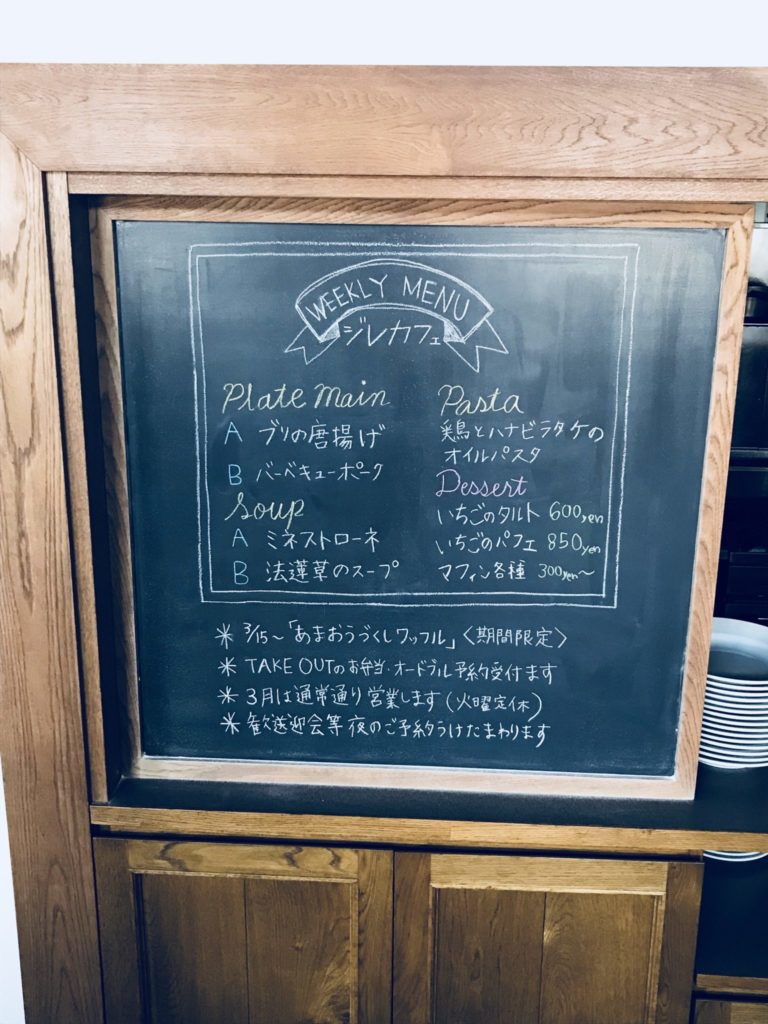 WEEKLY MENU
ジレカフェ
Plate Main
A ブリの唐揚げ
B バーベキューポーク
Soup
A ミネストローネ
B 法蓮草のスープ
Pasta
鶏とハナビラタケの
オイルパスタ
Dessert
いちごのタルト 600yen
いちごのパフェ 850yen
マフィン各種 300yen〜
＊ 3/15〜「あまおうづくしワッフル」〈期間限定〉
＊ TAKE OUTのお弁当・オードブル予約受付ます
＊ 3月は通常通り営業します（火曜定休）
＊ 歓送迎会等夜のご予約うけたまわります